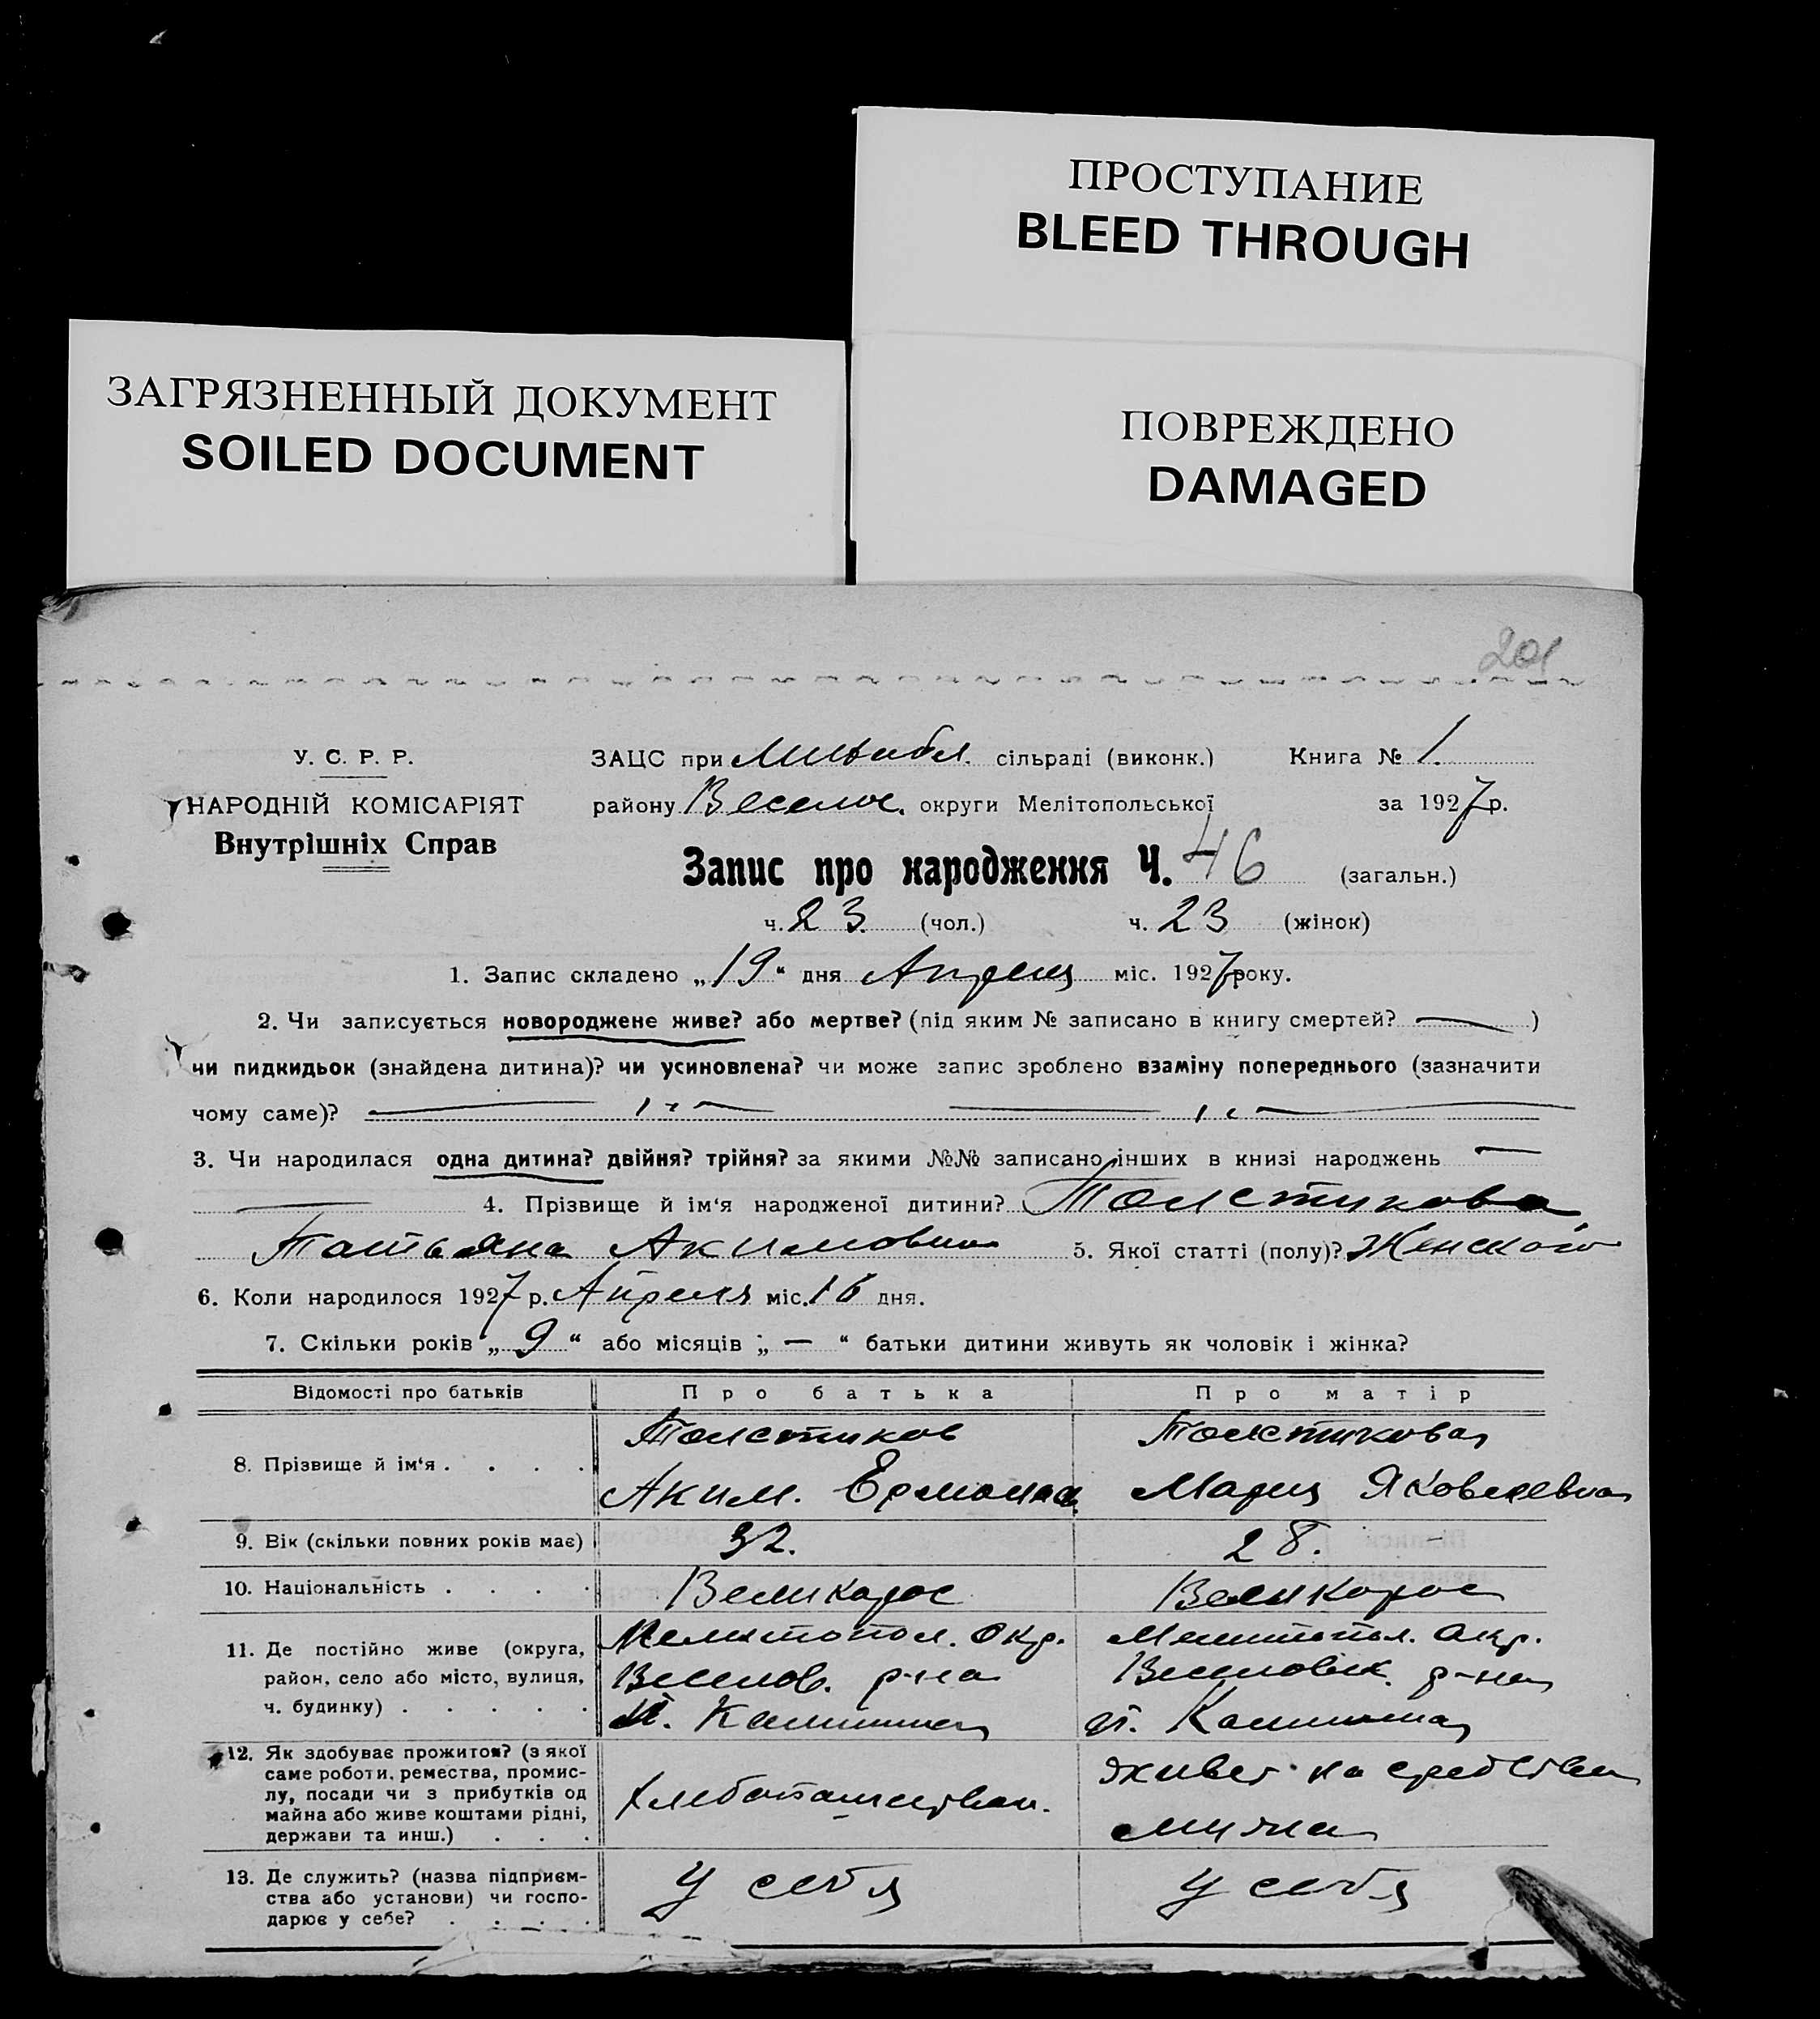 ПРОСТУПАНИЕ
BLEED THROUGH
ЗАГРЯЗНЕННЫЙ ДОКУМЕНТ
SOILED DOCUMENT
ПОВРЕЖДЕНО
DAMAGED
201
У. С. Р. Р.
НАРОДНІЙ КОМІСАРІЯТ
Внутрішніх Справ
ЗАЦС при сільраді (виконк.) Книга № 1.
району Веселос. округи Мелітопольської за 1927 р.
Запис про народження Ч. 46 (загальн.)
ч. 23. (чол.) ч. 23 (жінок)
1. Запис складено „19“ дня Апреля міс. 1927 року.
2. Чи записується новороджене живе? або мертве? (під яким № записано в книгу смертей? — )
чи пидкидьок (знайдена дитина)? чи усиновлена? чи може запис зроблено взаміну попереднього (зазначити
чому саме)?
3. Чи народилася одна дитина? двійня? трійня? за якими №№ записано інших в книзі народжень —
4. Прізвище й ім‘я народженої дитини? Толстикова
Татьяна Акимовна 5. Якої статті (полу)? Женского
6. Коли народилося 1927 р. Апреля міс. 16 дня.
7. Скільки років „9“ або місяців „—“ батьки дитини живуть як чоловік і жінка?
Відомості про батьків Про батька Про матір
8. Прізвище й ім‘я . . . .
Толстиков
Аким.
Толстикова
Мария Яковлевна
9. Вік (скільки повних років має) 32. 28.
10. Національність . . . . Великорос Великорос
11. Де постійно живе (округа,
район, село або місто, вулиця,
ч. будинку) . . . . .
Мелитопол. Окр.
Веселов. р-на
п. Калинина
Мелитопол. Окр.
Веселовск. р-на
п. Калинина
12. Як здобуває прожиток? (з якої
саме роботи, ремества, промис-
лу, посади чи з прибутків од
майна або живе коштами рідні,
держави та инш.) . . .
Хлебопашеством.
живет на средства
мужа
13. Де служить? (назва підприєм-
ства або установи) чи госпо-
дарює у себе? . . . .
У себя
У себя